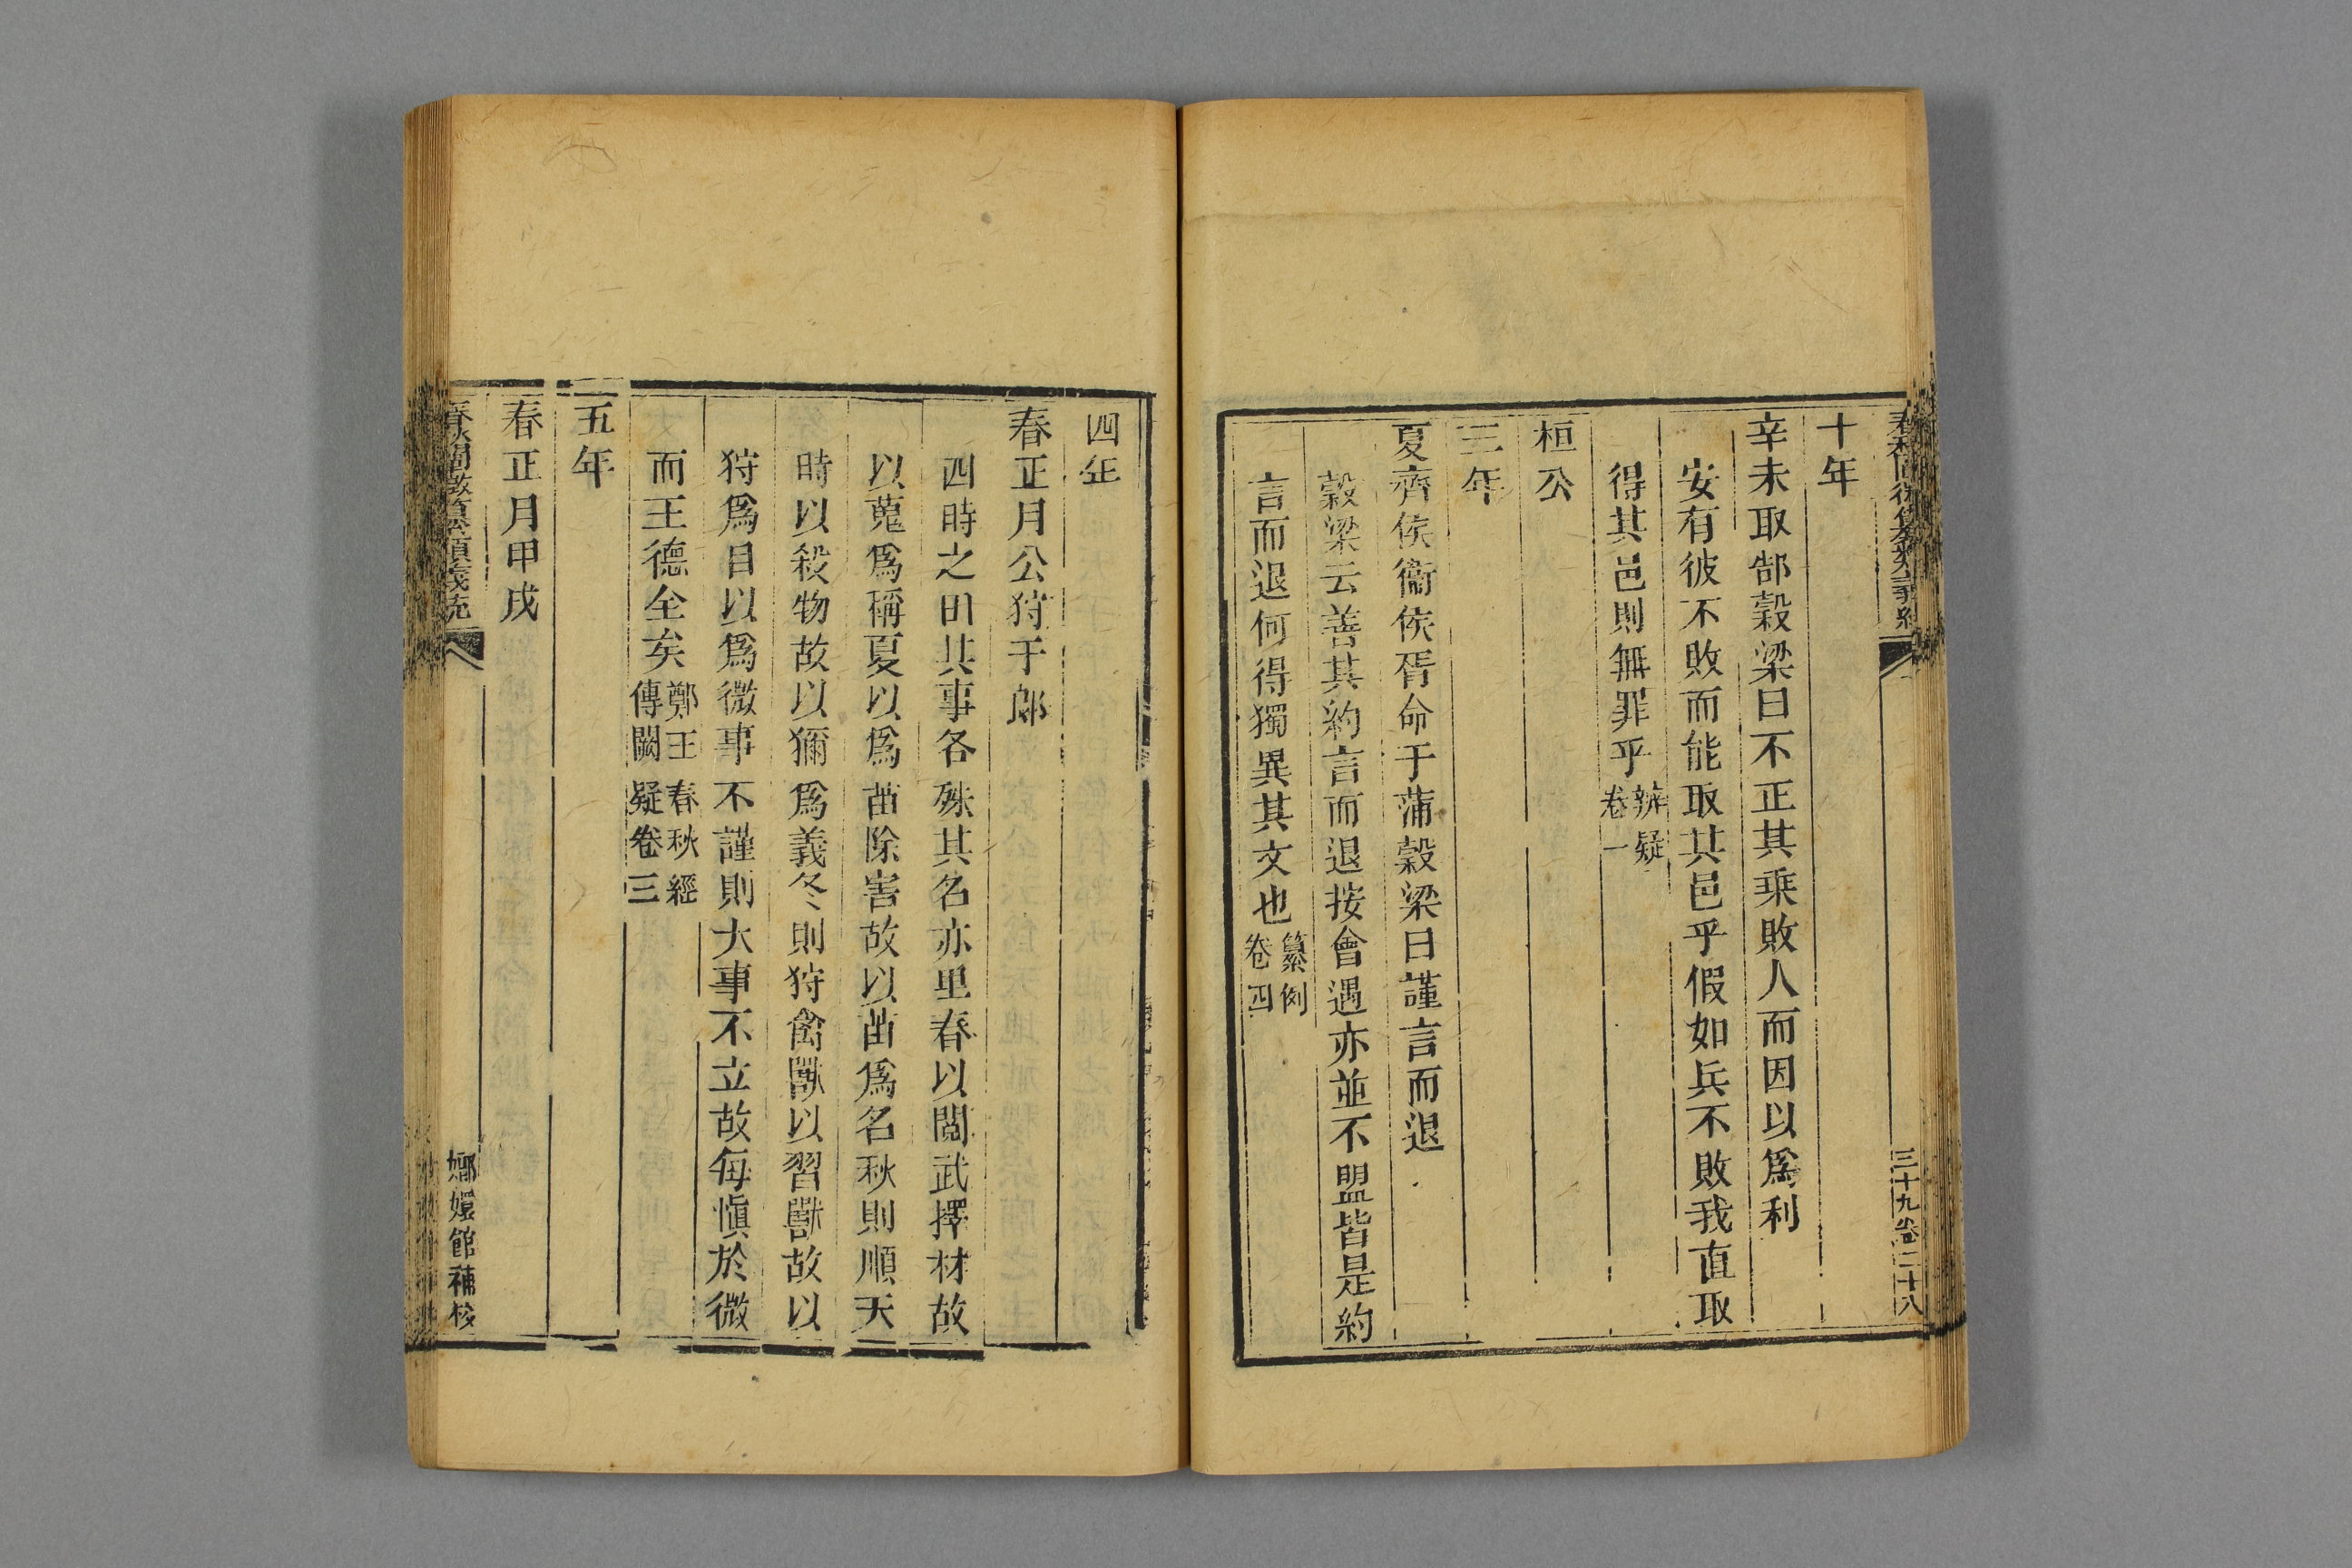 十年
辛未取郜穀梁曰不正其乘敗人而因以爲利
安有彼不敗而能取其邑乎假如兵不敗我直取
得其邑則無罪乎辨疑
卷一
桓公
三年
夏齊侯衞侯胥命于蒲穀梁曰謹言而退
穀梁云善其約言而退按會遇亦並不盟皆是約
言而退何得獨異其文也纂例
卷四
三十九卷二十八
四年
春正月公狩于郎
四時之田其事各殊其名亦里春以閱武擇材故
以蒐爲稱夏以爲苗除害故以苗爲名秋則順天
時以殺物故以獮爲義冬則狩禽獸以習獸故以
狩爲目以爲微事不謹則大事不立故每愼於微
而王德全矣鄭王春秋經
傳闕疑卷三
五年
春正月甲戌
嫏嬛館補校